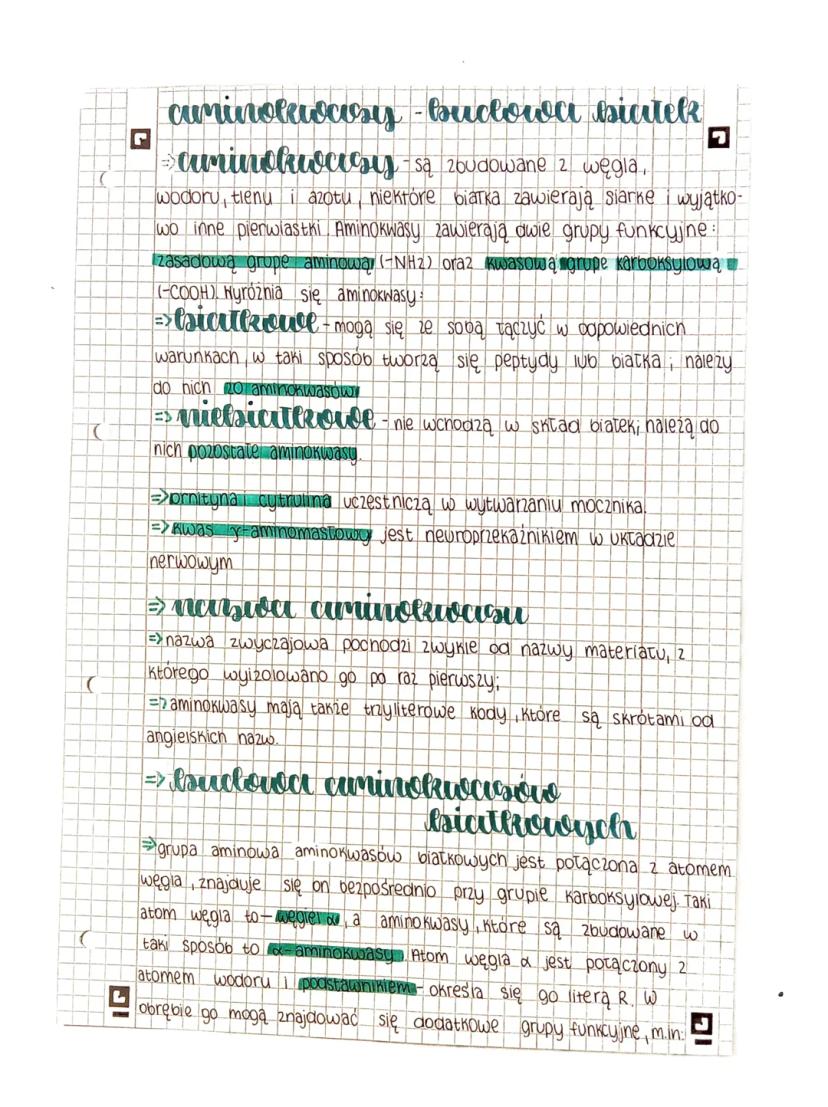 aminokwasy - budowa białek
=> aminokwasy - są zbudowane z węgla,
wodoru, tlenu i azotu, niektóre białka zawierają siarkę i wyjątko-
wo inne pierwiastki. Aminokwasy zawierają dwie grupy funkcyjne:
zasadową grupę aminową (-NH2) oraz kwasową grupę karboksylową
(-COOH). Wyróżnia się aminokwasy:
=> białkowe - mogą się ze sobą łączyć w odpowiednich
warunkach, w taki sposób tworzą się peptydy lub białka; należy
do nich 20 aminokwasów
=> niebiałkowe - nie wchodzą w skład białek; należą do
nich pozostałe aminokwasy.
=> ornityna i cytrulina uczestniczą w wytwarzaniu mocznika.
=> kwas γ-aminomasłowy jest neuroprzekaźnikiem w układzie
nerwowym
=> nazwa aminokwasu
=> nazwa zwyczajowa pochodzi zwykle od nazwy materiału, z
którego wyizolowano go po raz pierwszy;
=> aminokwasy mają także trzyliterowe kody, które są skrótami od
angielskich nazw.
=> budowa aminokwasów
białkowych
=> grupa aminowa aminokwasów białkowych jest połączona z atomem
węgla, znajduje się on bezpośrednio przy grupie karboksylowej. Taki
atom węgla to - węgiel α, a aminokwasy, które są zbudowane w
taki sposób to α-aminokwasy. Atom węgla α jest połączony z
atomem wodoru i podstawnikiem - określa się go literą R. W
obrębie go mogą znajdować się dodatkowe grupy funkcyjne, m.in: